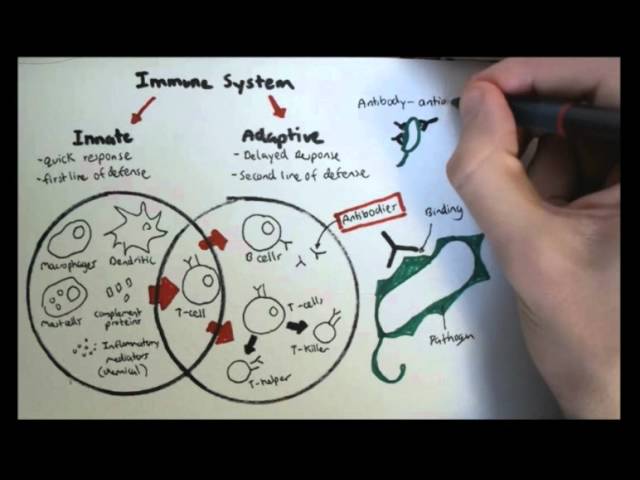 Immune System
Innate
-quick response
-first line of defense
Adaptive
- Delayed Response
-Second line of defense
Antibody-antig
Macrophages
Dendritic
Mast cells
complement
proteins
Inflammatory
mediators
(chemical)
T-cell
B cells
Antibodies
T-cells
T-Killer
T-helper
Binding
Pathogen